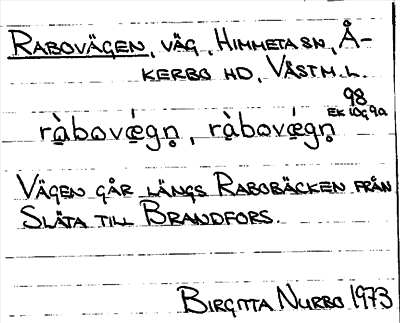 RABOVÄGEN, VÄG, HIMMETA SN, Å-
KERBO HD, VÄSTM.L.
98
EK 10G 9a
ràbovǽgn̥, ràbovǽgn̥
VÄGEN GÅR LÄNGS RABOBÄCKEN FRÅN
SLÄTA TILL BRANDFORS.
BIRGITTA NURBO 1973